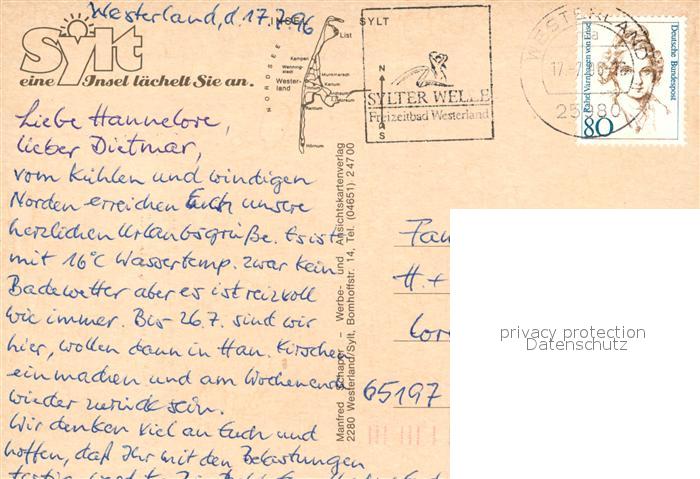 Westerland, d. 17.7.96
Sylt
eine Insel lächelt Sie an.
INSEL SYLT
NORDSEE
List
Kampen
Wenning-
stadt
Wester-
land
Munkmarsch
Keitum
Hörnum
N
S
SYLTER WELLE
Freizeitbad Westerland
WESTERLAND
25980
Rahel Varnhagen von Ense
Deutsche Bundespost
80
Liebe Hannelore,
lieber Dietmar,
vom kühlen und windigen
Norden erreichen Euch unsere
herzlichen Urlaubsgrüße. Es ist
mit 16°C Wassertemp. zwar kein
Badewetter aber es ist reizvoll
wie immer. Bis 26.7. sind wir
hier, wollen dann in Han. Kirschen
einmachen und am Wochenende
wieder zurück sein.
Wir denken viel an Euch und
hoffen, daß Ihr mit den Belastungen
Manfred Schaper - Werbe- und Ansichtskartenverlag
2280 Westerland/Sylt, Bomhoffstr. 14, Tel. (04651) 2 47 00
Fam
H. +
65197
privacy protection
Datenschutz